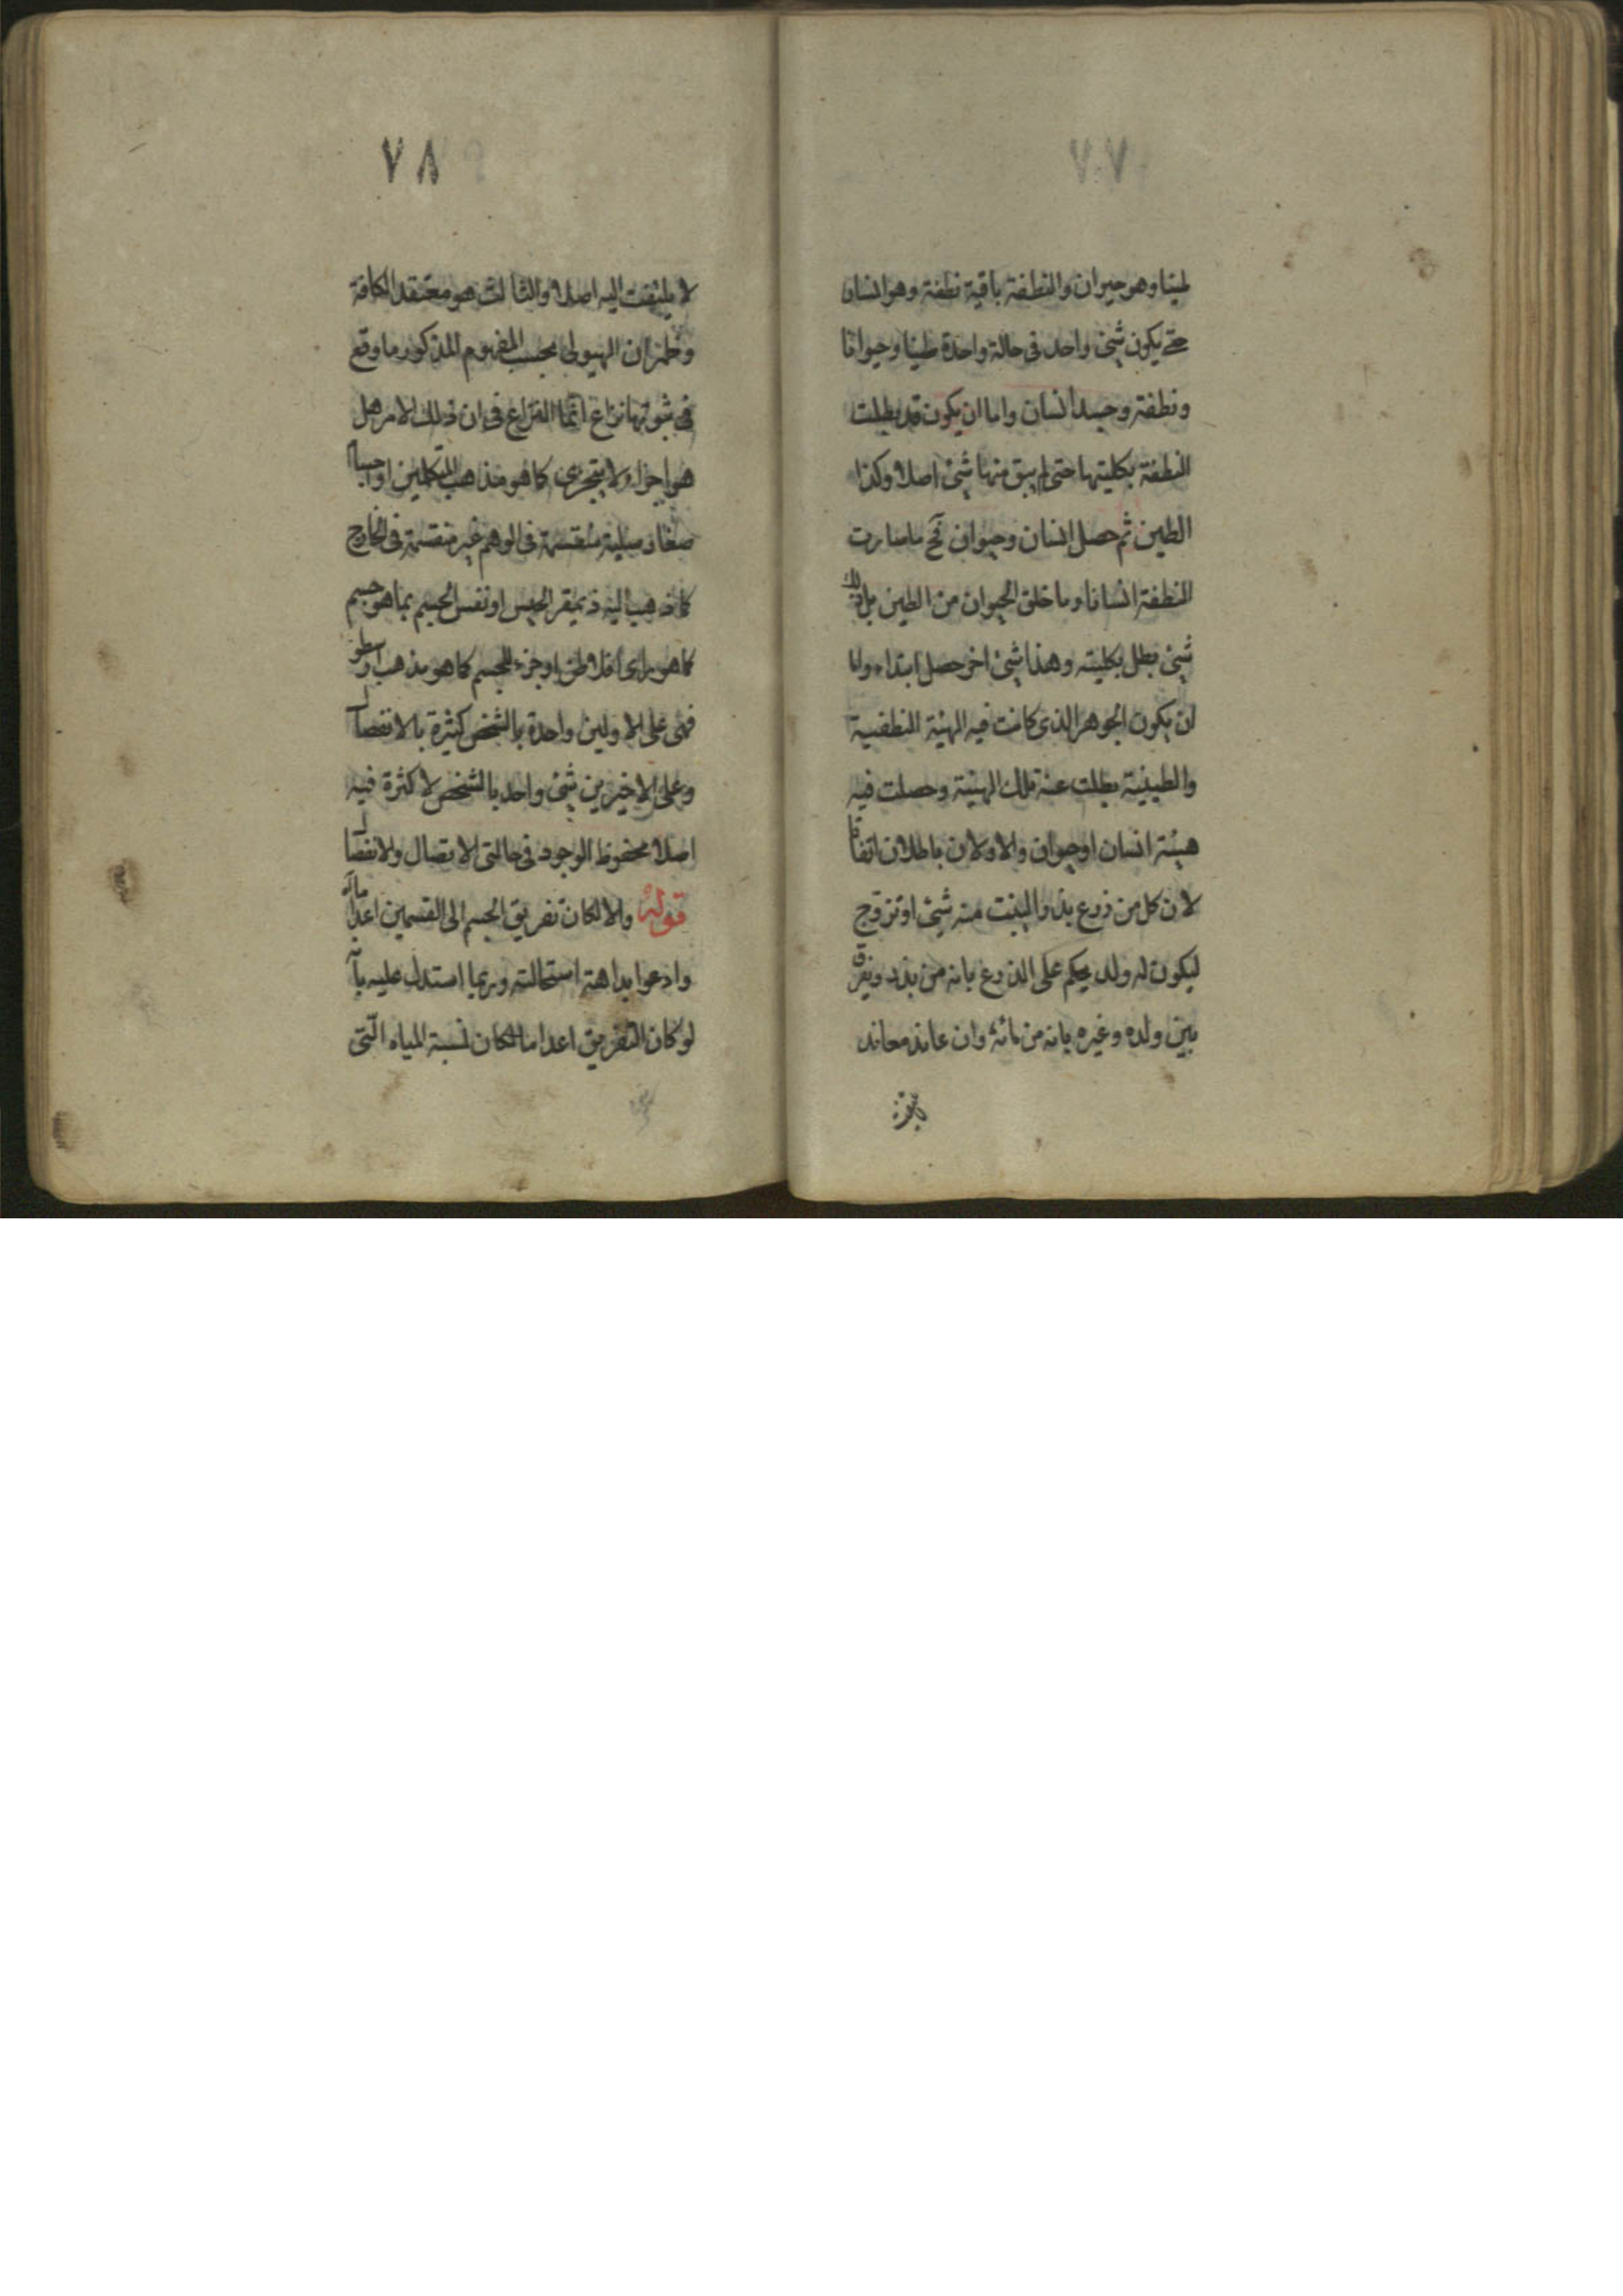 ٧٧
طينا وهو حيوان والنطفة باقية نطفة وهو انسان
حتے يكون شئ واحد فى حالة واحدة طينا وحيوانا
ونطفة وجسد انسان واما ان يكون قد بطلت
النطفة بكليتها حتى لم يبق منها شئ اصلا وكذا
الطين ثم حصل انسان وحيوان فح ما صارت
النطفة انسانا وما خلق الحيوان من الطين بل ذلك
شئ بطل بكليته وهذا شئ اخر حصل ابتداء واما
ان يكون الجوهر الذى كانت فيه الهيئة النطفية
والطينية بطلت عنه تلك الهيئة وحصلت فيه
هيئة انسان او حيوان والاولان باطلان اتفاقا
لان كل من زرع بذرا لينبت منه شئ او تزوج
ليكون له ولد يحكم على الزرع بانه من بذره ويفرق
بين ولده وغيره بانه من مائه وان عاند معاند
لا يلتفت
٧٨
لا يلتفت اليه اصلا والثالث هو معتقد الكافة
وظهر ان الهيولى بحسب المفهوم المذكور ما وقع
فى ثبوتها نزاع انما النزاع فى ان ذلك الامر هل
هو اجزاء لا يتجزى كما هو مذهب المتكلمين او اجسام
صغار صلبة منقسمة فى الوهم غير منقسمة فى الخارج
كما ذهب اليه ذيمقراطيس او نفس الجسم بما هو جسم
كما هو راى افلاطن او جزء للجسم كما هو مذهب ارسطو
فهى على الاولين واحدة بالشخص كثيرة بالانفصال
وعلى الاخيرين شئ واحد بالشخص لا كثرة فيه
اصلا محفوظ الوجود فى حالتى الاتصال والانفصال
قوله والا لكان تفريق الجسم الى القسمين اعداما له
وادعوا بداهة استحالته وربما استدل عليه بانه
لو كان التفريق اعداما لكان نسبة المياه الّتى